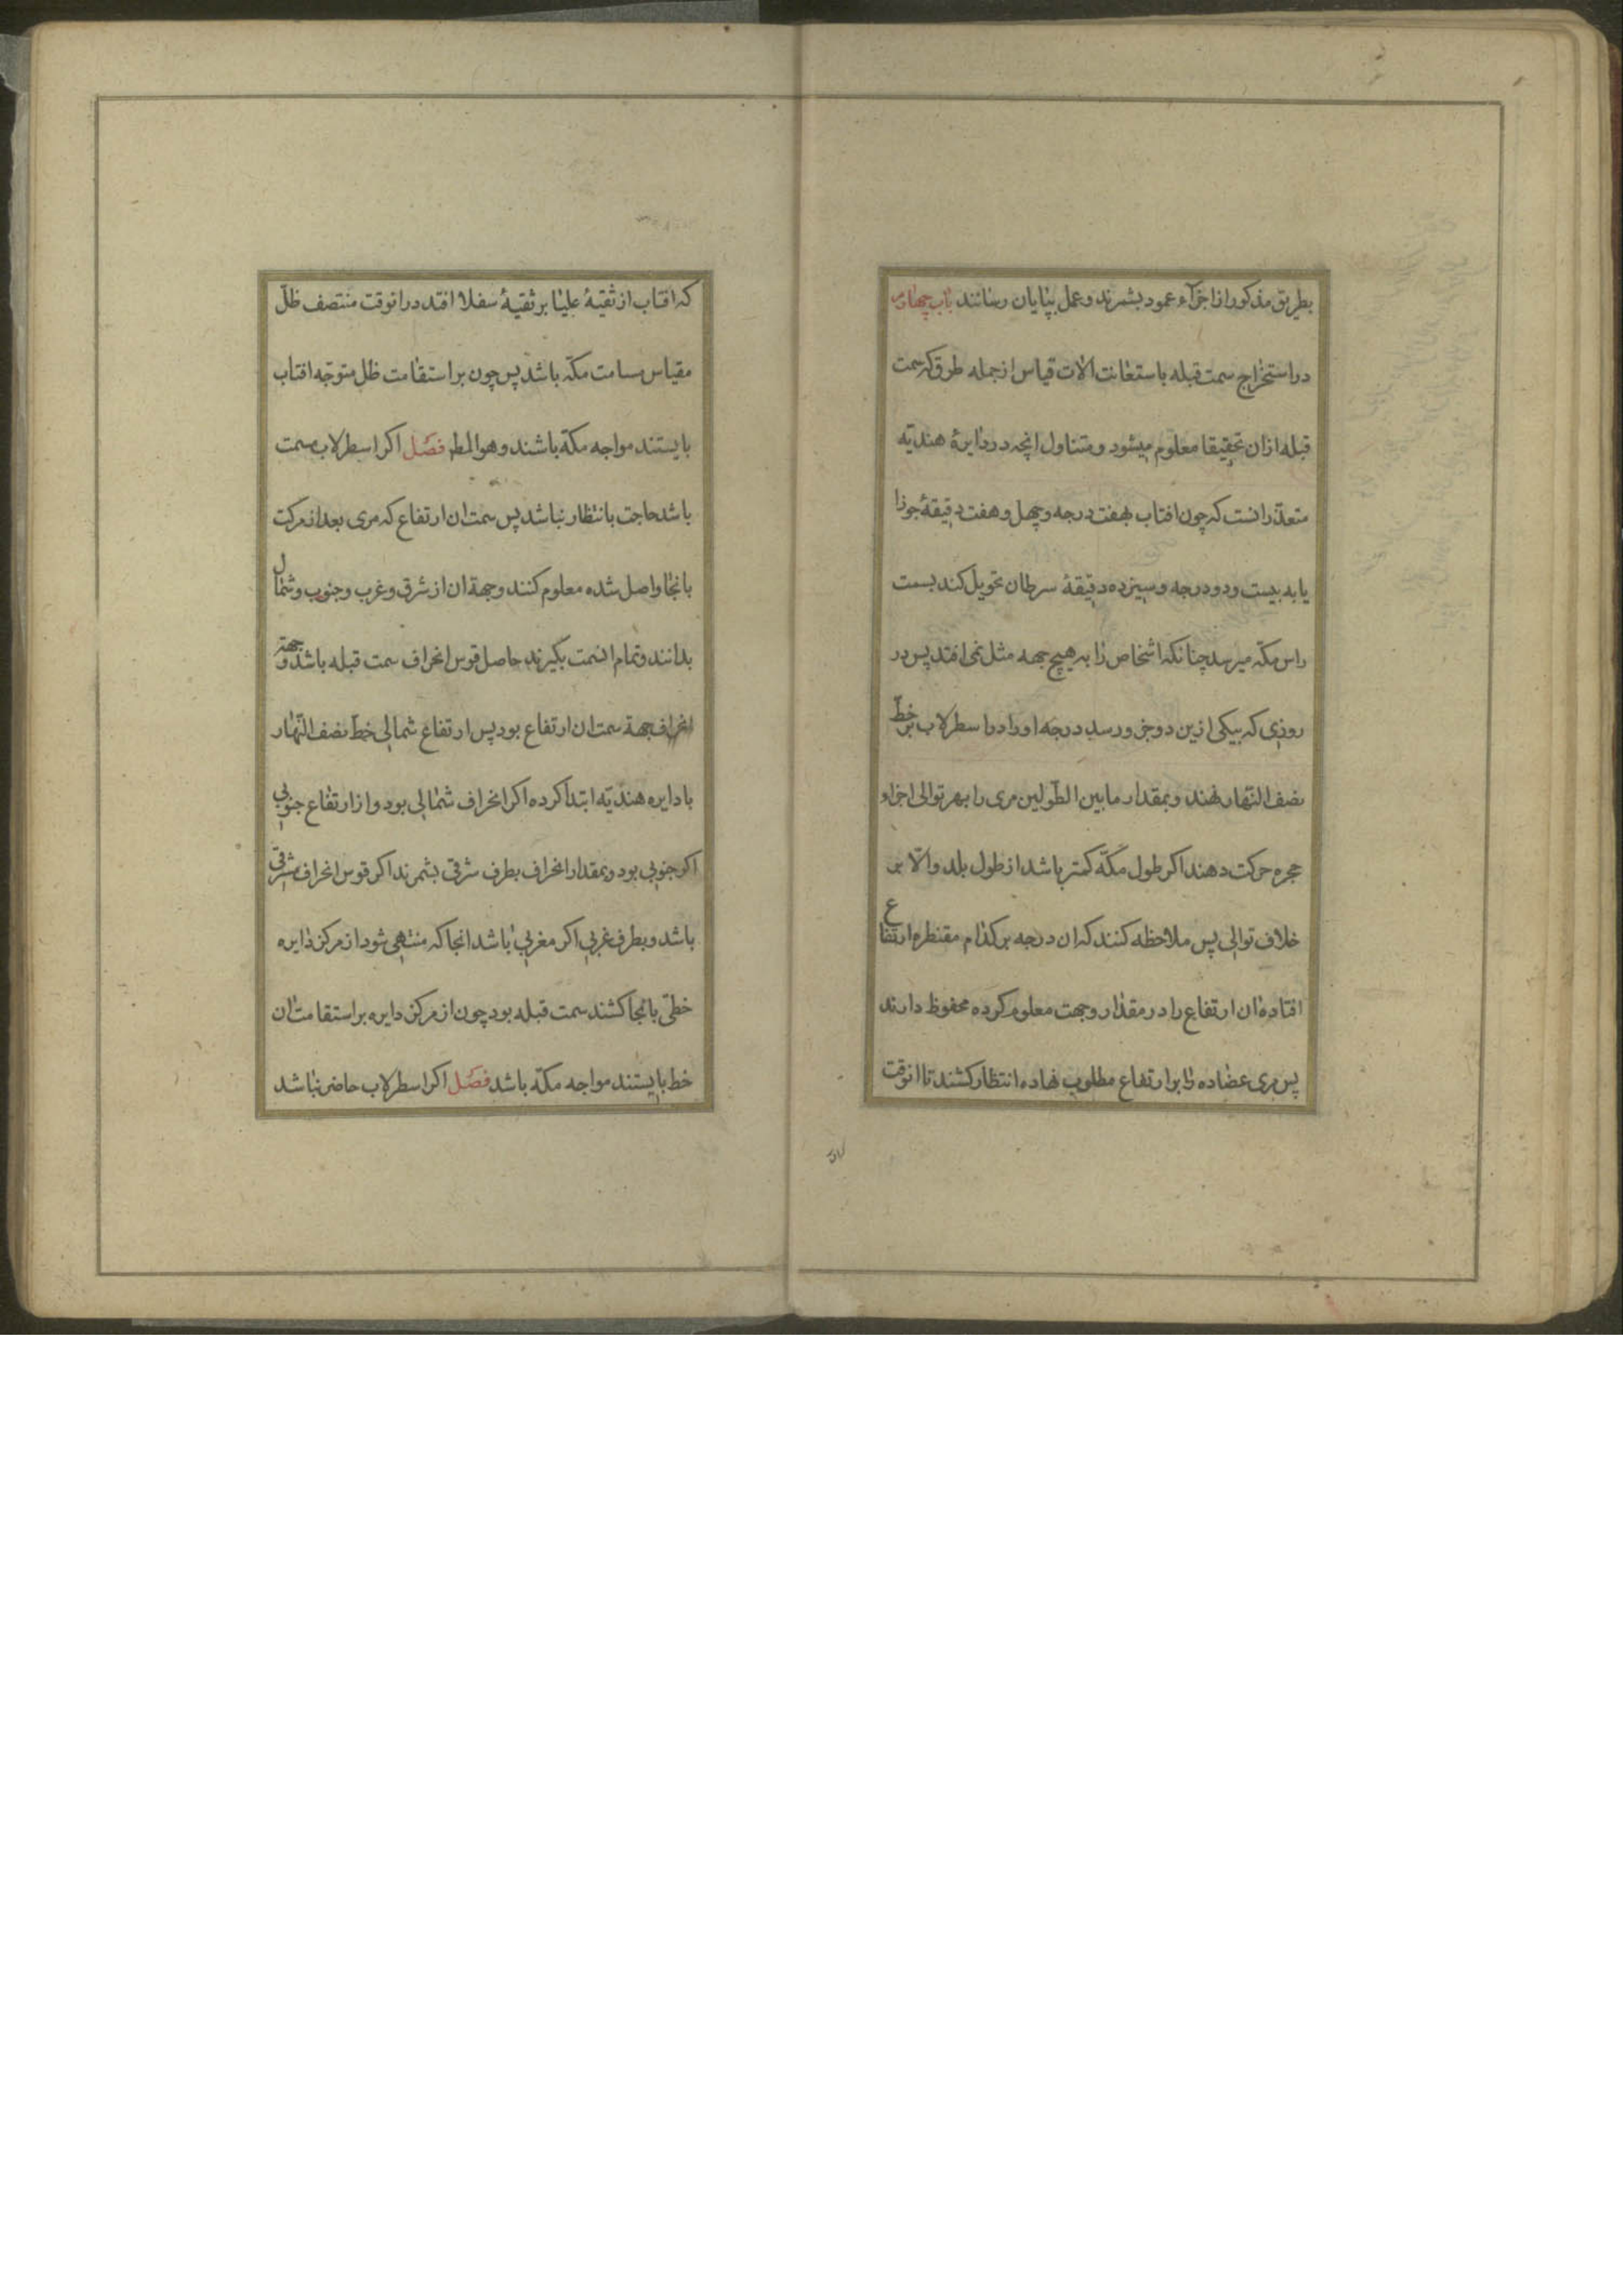 بطریق مذکور از اجزآء عمود بشمرند و عمل بپایان رسانند باب چهارم
در استخراج سمت قبله باستعانت الات قیاس از جمله طرق که سمت
قبله ازان تحقیقا معلوم میشود و متناول انچه در دایرهٔ هندیّه
متعذّر انست که چون افتاب بهفت درجه و چهل و هفت دقیقهٔ جوزا
یا به بیست و دو درجه و سیزده دقیقهٔ سرطان تحویل کند بسمت
راس مکّه میرسد چنانکه اشخاص را به هیچ جهه مثل نمی افتد پس در
روزی که بیکی ازین دو جزو رسد درجه او را در اسطرلاب بر خطّ
نصف النّهار نهند و بمقدار ما بین الطّولین مری را بهر توالی اجزاو
حجره حرکت دهند اکر طول مکّه کمتر باشد از طول بلد والّا بر
خلاف توالی پس ملاحظه کنند که ان درجه بر کدام مقنطره ارتفاع
افتاده ان ارتفاع را در مقدار و جهت معلوم کرده محفوظ دارند
پس مری عضاده را بر ارتفاع مطلوب نهاده انتظار کشند تا انوقت
که افتاب از ثقبهٔ علیا بر ثقبهٔ سفلا افتد در انوقت منتصف ظلّ
مقیاس مسامت مکّه باشد پس چون بر استقامت ظل متوجّه افتاب
بایستند مواجه مکّه باشند و هو المط فصل اکر اسطرلاب مسمت
باشد حاجت بانتظار نباشد پس سمت ان ارتفاع که مری بعد از حرکت
بانجا واصل شده معلوم کنند و جهة ان از شرق و غرب و جنوب و شمال
بدانند و تمام انسمت بکیرند حاصل قوس انحراف سمت قبله باشد و جهة
انحراف جهة سمت ان ارتفاع بود پس ارتفاع شمالی خطّ نصف النّهار
با دایره هندیّه ابتدا کرده اکر انحراف شمالی بود و از ارتفاع جنوبی
اکر جنوبی بود و بمقدار انحراف بطرف شرقی بشمرند اکر قوس انحراف شرقی
باشد و بطرف غربی اکر مغربی باشد انجا که منتهی شود از مرکز دایره
خطّی بانجا کشند سمت قبله بود چون از مرکز دایره بر استقامت ان
خط بایستند مواجه مکّه باشد فصل اکر اسطرلاب حاضر نباشد